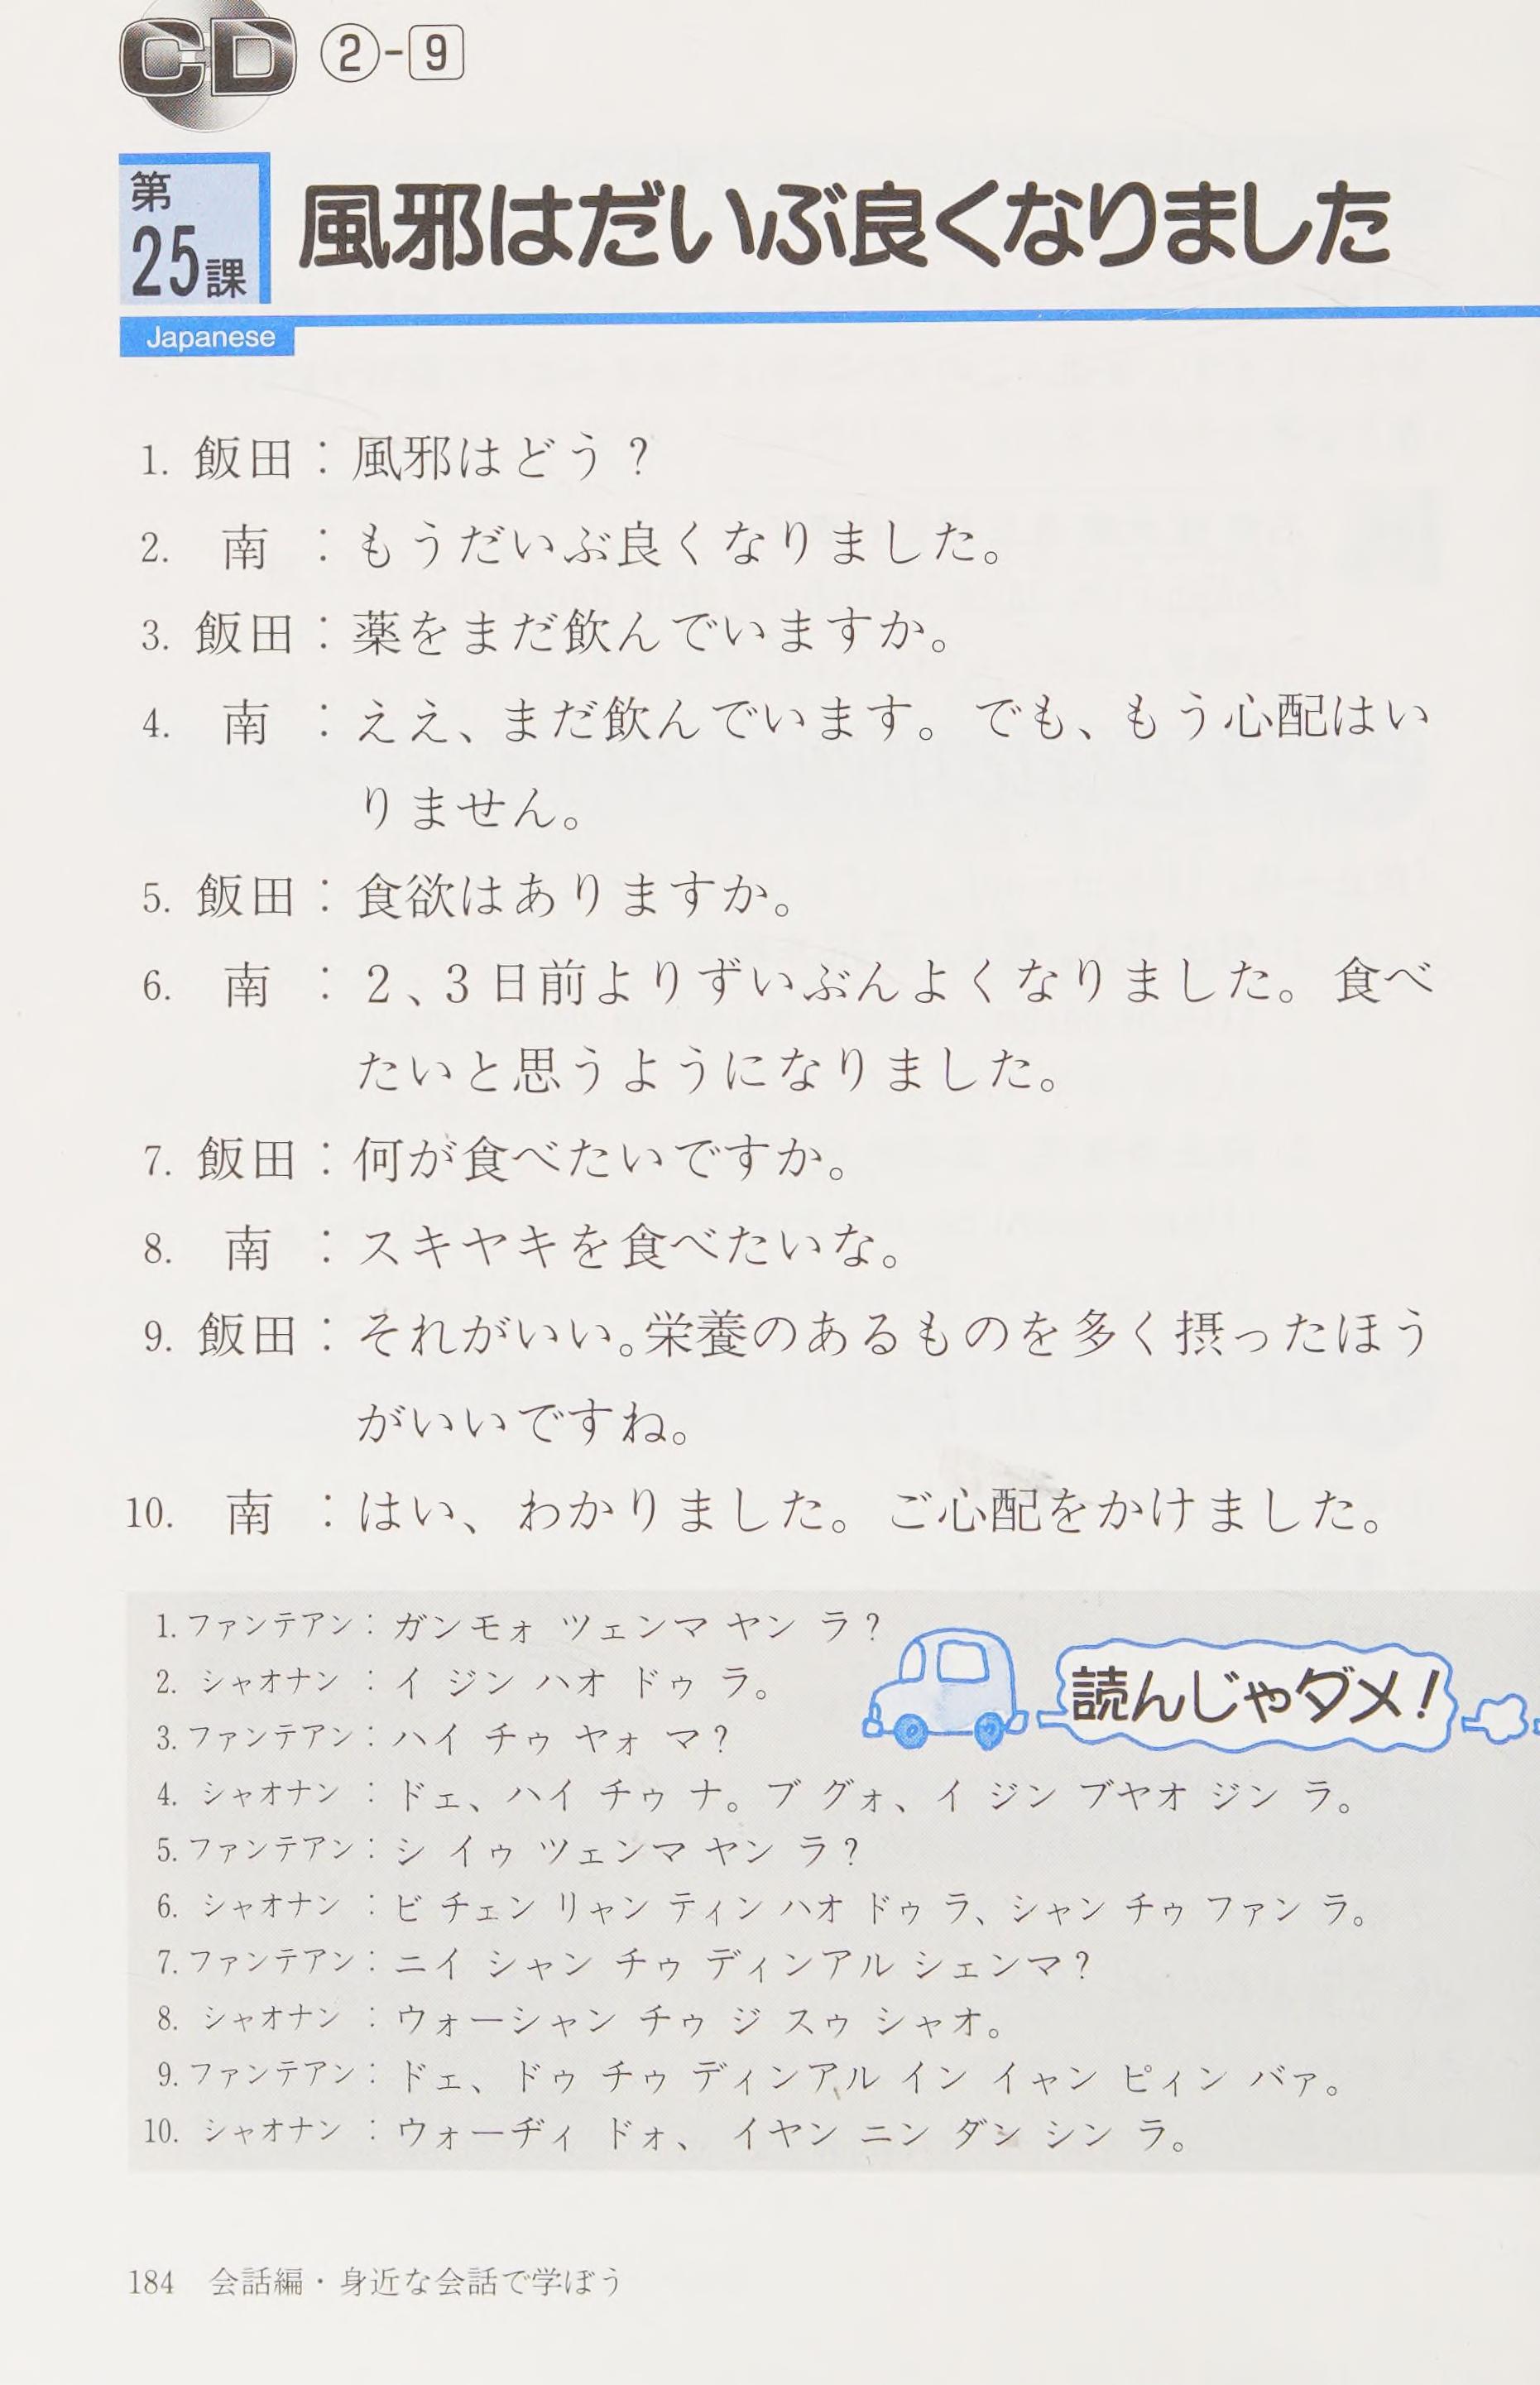 CD ②-9
第25課 風邪はだいぶ良くなりました
Japanese
1. 飯田：風邪はどう？
2. 南：もうだいぶ良くなりました。
3. 飯田：薬をまだ飲んでいますか。
4. 南：ええ、まだ飲んでいます。でも、もう心配はい
りません。
5. 飯田：食欲はありますか。
6. 南：２、３日前よりずいぶんよくなりました。食べ
たいと思うようになりました。
7. 飯田：何が食べたいですか。
8. 南：スキヤキを食べたいな。
9. 飯田：それがいい。栄養のあるものを多く摂ったほう
がいいですね。
10. 南：はい、わかりました。ご心配をかけました。
1. ファンテアン：ガンモォ ツェンマ ヤン ラ？
2. シャオナン：イ ジン ハオ ドゥ ラ。
読んじゃダメ！
3. ファンテアン：ハイ チゥ ヤォ マ？
4. シャオナン：ドェ、ハイ チゥ ナ。ブ グォ、イ ジン ブヤオ ジン ラ。
5. ファンテアン：シ イゥ ツェンマ ヤン ラ？
6. シャオナン：ビ チェン リャン ティン ハオ ドゥ ラ、シャン チゥ ファン ラ。
7. ファンテアン：ニイ シャン チゥ ディンアル シェンマ？
8. シャオナン：ウォーシャン チゥ ジ スゥ シャオ。
9. ファンテアン：ドェ、ドゥ チゥ ディンアル イン イャン ピィン バァ。
10. シャオナン：ウォーヂィ ドォ、イヤン ニン ダン シン ラ。
184 会話編・身近な会話で学ぼう